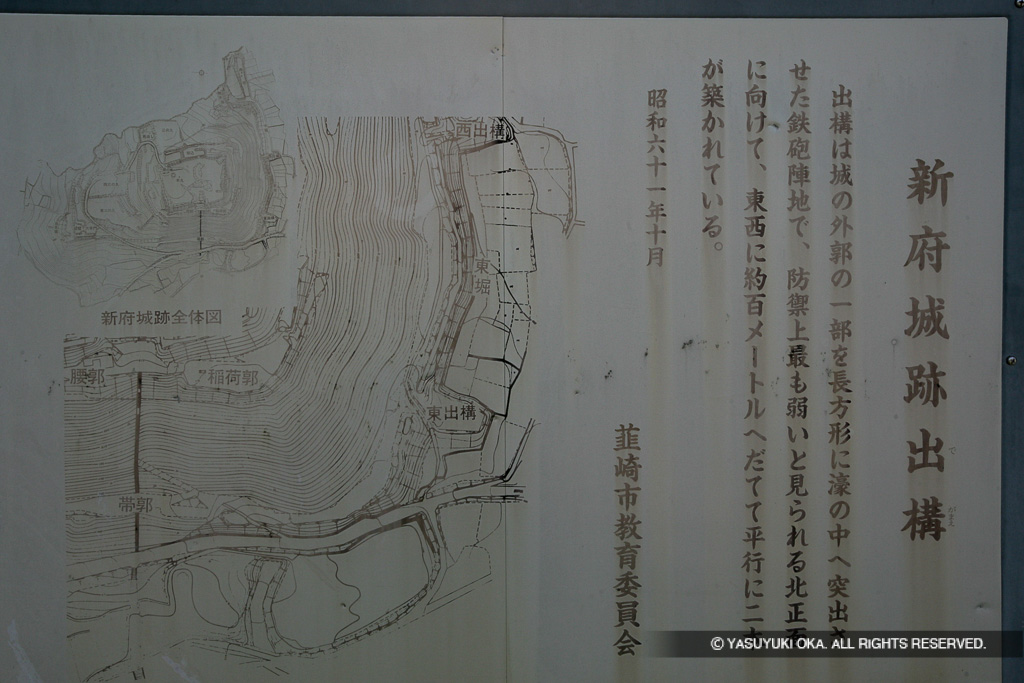 新府城跡出構
で
がまえ
出構は城の外郭の一部を長方形に濠の中へ突出さ
せた鉄砲陣地で、防禦上最も弱いと見られる北正面
に向けて、東西に約百メートルへだてて平行に二カ
が築かれている。
昭和六十一年十月
韮崎市教育委員会
西出構
東堀
新府城跡全体図
腰郭
稲荷郭
東出構
帯郭
© YASUYUKI OKA. ALL RIGHTS RESERVED.